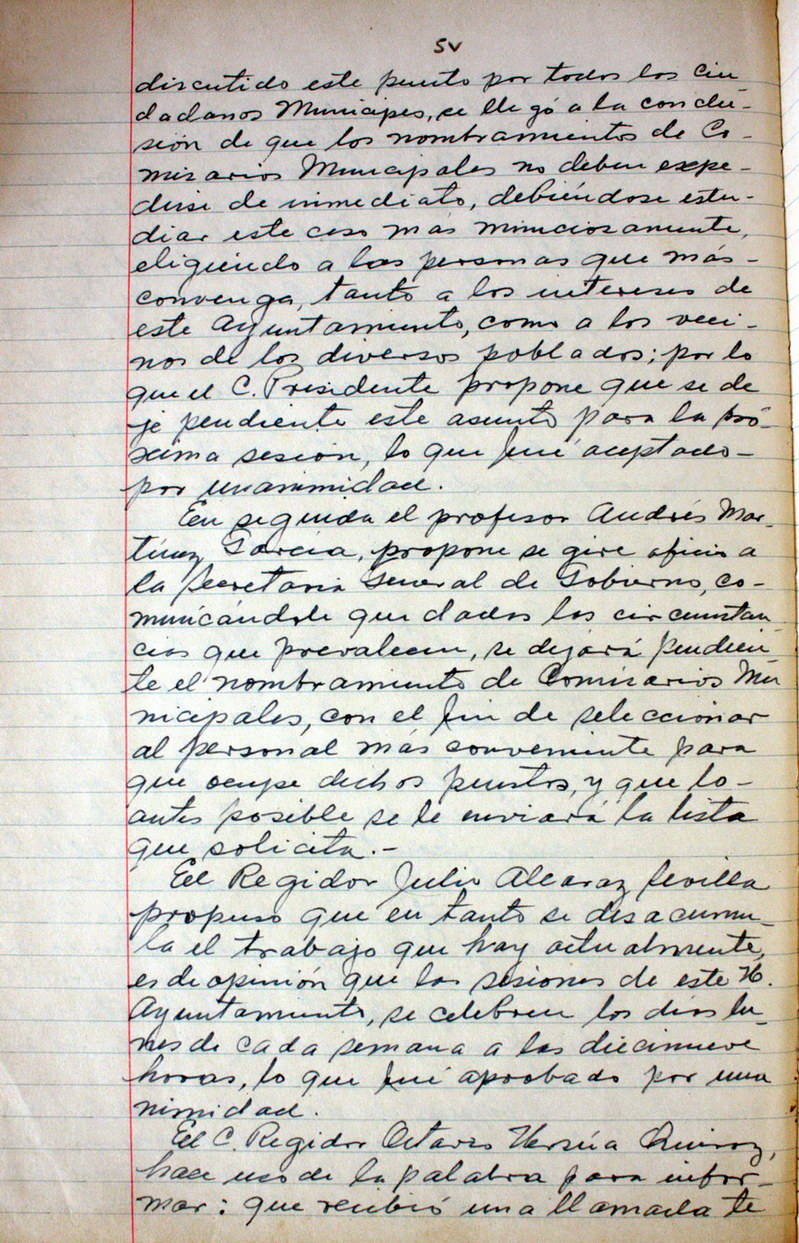 5v
discutido este punto por todos los ciu
dadanos Munícipes, se llegó a la conclu-
sión de que los nombramientos de Co-
misarios Municipales no deben expe-
dirse de inmediato, debiéndose estu-
diar este caso más minciosamente,
eligiendo a las personas que más-
convenga, tanto a los intereses de
este Ayuntamiento, como a los veci-
nos de los diversos poblados; por lo
que el C. Presidente propone que se de
je pendiente este asunto para la pró-
xima sesión, lo que fué aceptado-
por unanimidad.
En seguida el profesor Andrés Mar-
tínez García, propone se gire oficio a
la Secretaria General de Gobierno, co-
municándole que dadas las circunstan
cias que prevalecen, se dejará pendien
te el nombramiento de Comisarios Mu
nicipales, con el fin de seleccionar
al personal más conveniente para
que ocupe dichos puestos, y que lo-
antes posible se le enviará la lista
que solicita.-
El Regidor Julio Alcaraz Sevilla
propuso que en tanto se desacumu-
la el trabajo que hay actualmente,
es de opinión que las sesiones de este H.
Ayuntamiento, se celebren los días lu-
nes de cada semana a las diecinueve
horas, lo que fué aprobado por una
nimidad.
El C. Regidor Octavio Quiroz,
hace uso de la palabra para infor-
mar: que recibió una llamada te